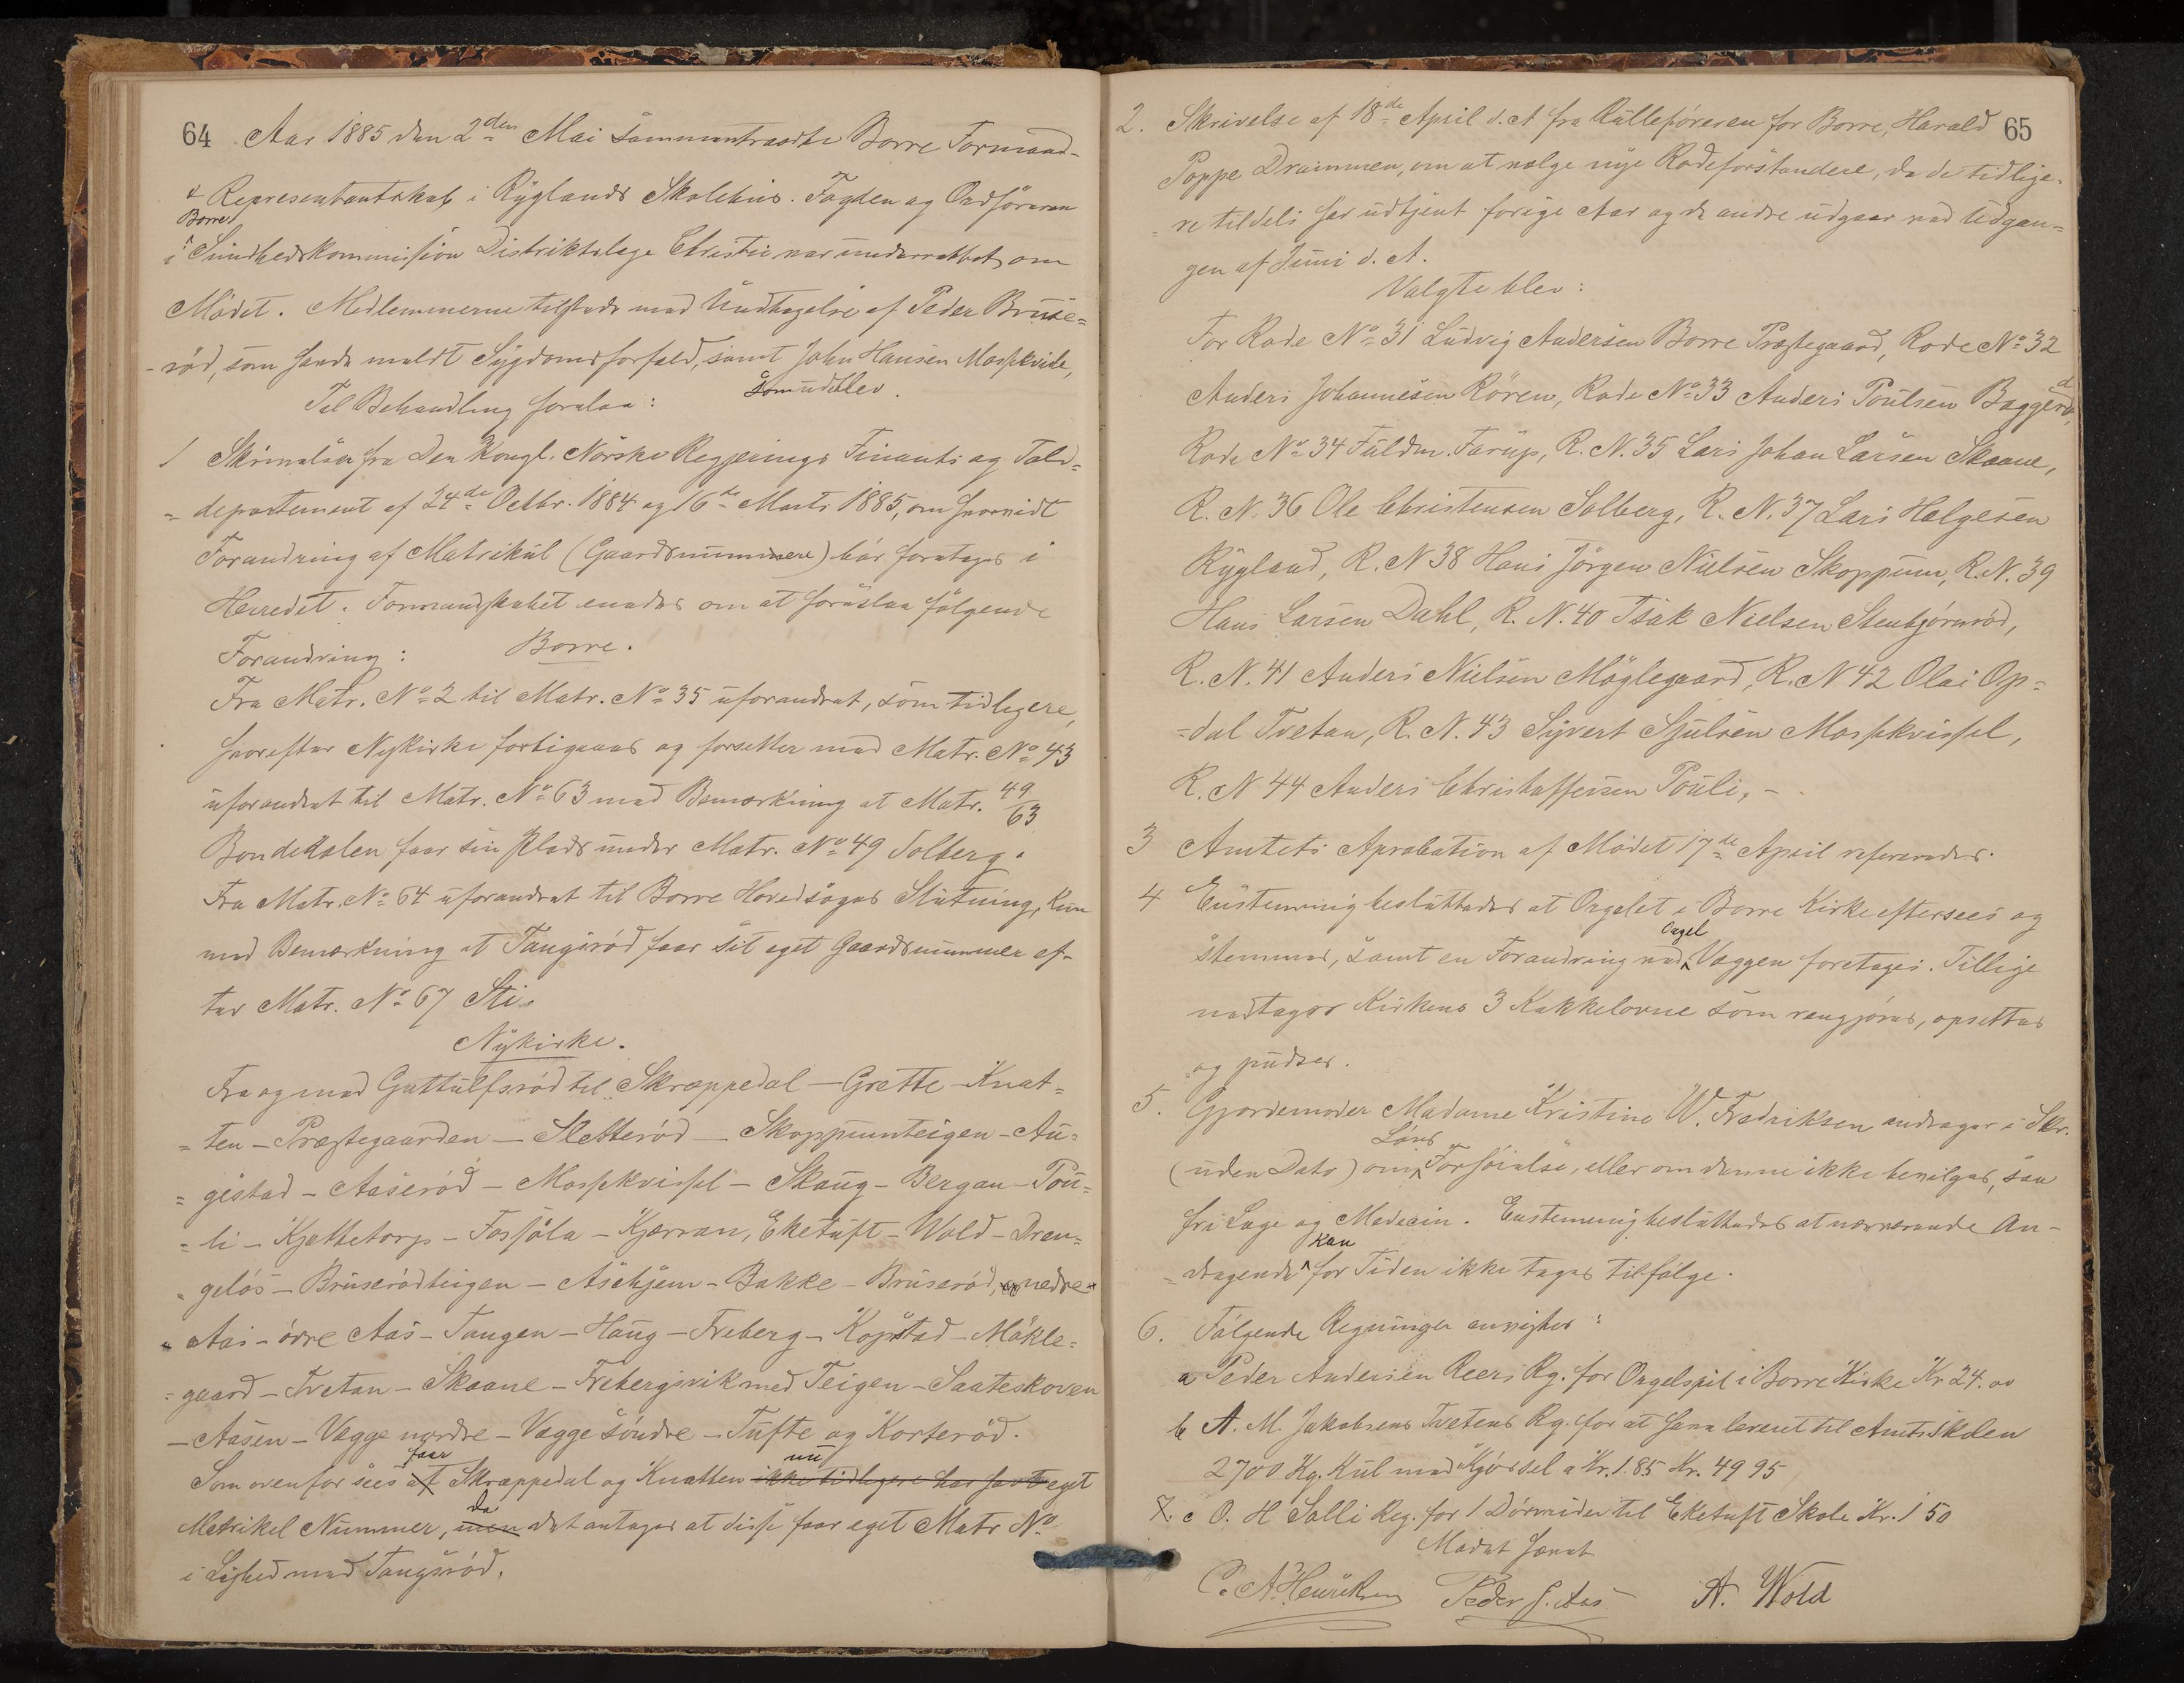 64
Aar 1885 den 2den Mai sammentraadte Borre Formand-
& Representantskab i Ryglands Skolehus. Fogden og Ordføreren
i Borre Sundhedskommission Distriktslæge Christie var underrettet om
Mødet. Medlemmerne tilstede med Undtagelse af Peder Bruse=
-rød, som havde meldt Sygdomsforfald, samt John Hansen Mosskvile,
som udeblev.
Til Behandling forelaa:
1 Skrivelser fra Den Kongl. Norske Regjerings Finants og Told=
=departement af 24de Octbr. 1884 og 16de Marts 1885, om hvorvidt
Forandring af Matrikul (Gaardsnummere) bør foretages i
Herredet. Formandskabet enedes om at foreslaa følgende
Forandring: Borre.
Fra Matr. No 2 til Matr. No 35 uforandret, som tidligere,
hvorefter Nykirke forbigaaes og forsetter med Matr. No 43
uforandret til Matr. No 63 med Bemærkning at Matr. 49/63
Bondedalen faar sin Plads under Matr. No 49 Solberg.
Fra Matr. No 64 uforandret til Borre Hovedsogns Slutning, kun
med Bemærkning at Tangsrød faar sit eget Gaardsnummer ef-
ter Matr. No 67 Sti.
Nykirke.
Fra og med Guttulfsrød til Skræppedal - Grette - Knat=
=ten - Præstegaarden - Sletterød - Skoppumteigen - Au=
=gestad - Aaserød - Mosskvissel - Skaug - Bergan - Pou=
=li - Kjættetorp - Fossøla - Kjærran, Eketuft - Wold - Dren=
=geløs - Bruserødteigen - Askjem - Bakke - Bruserød, nedre
Aas - övre Aas - Tangen - Haug - Freberg - Kopstad - Møkle=
=gaard - Tvetan - Skaane - Frebergsvik med Teigen - Saateskoven
- Aasen - Vægge nordre - Vægge søndre - Tufte og Korterød.
Som ovenfor sees faar Skræppedal og Knatten nu ikke tidligere har havt eget
Matrikel Nummer, men da det antages at disse faar eget Matr No
i Lighed med Tangsrød.
65
2. Skrivelse af 18de April d. A. fra Rulleføreren for Borre, Harald
Poppe Drammen, om at vælge nye Rodeforstandere, da de tidlige-
=re tildels har udtjent forige Aar og de andre udgaar ved Udgan=
gen af Juni d. A.
Valgte blev:
For Rode No 31 Ludvig Andersen Borre Præstegaard, Rode No 32
Anders Johannesen Røren, Rode No 33 Anders Poulsen Baggerød,
Rode No 34 Fuldm. Farup, R. N. 35 Lars Johan Larsen Skaane,
R. N. 36 Ole Christensen Solberg, R. N. 37 Lars Helgesen
Rygland, R. N 38 Hans Jørgen Nielsen Skoppum, R. N. 39
Hans Larsen Dahl, R. N. 40 Isak Nielsen Stenbjørnrød,
R. N. 41 Anders Nielsen Møglegaard, R. N 42 Olai Op=
=dal Tvetan, R. N. 43 Syvert Sjulsen Mosskvissel,
R. N 44 Anders Christoffersen Pouli, -
3 Amtets Aprobation af Mødet 17de April refereredes.
4 Enstemmig besluttedes at Orgelet i Borre Kirke eftersees og
stemmes, samt en Forandring ved Orgel Væggen foretages. Tillige
nedtages Kirkens 3 Kakkelovne som rengjøres, opsettes
og pudses.
5. Gjordemoder Madame Kristine W. Fredriksen andrager i Skr.
(uden Dato) om Løns Forhøielse, eller om denne ikke bevilges, saa
fri Læge og Medecin. Enstemmig besluttedes at nærværende An-
=dragende kan for Tiden ikke tages tilfølge.
6. Følgende Regninger anvistes:
a Peder Andersen Reers Rg. for Orgelspil i Borre Kirke Kr 24.00
b A. M. Jakobsens Tvetens Rg. for at have leveret til Amtsskolen
2700 Kg. Kul med Kjørsel a Kr. 1.85 Kr. 49 95
7. c O. H Solli Reg. for 1 Dørvrider til Eketuft Skole Kr. 1 50
Mødet hævet
C. A. Henriksen Peder J. Aas A. Wold